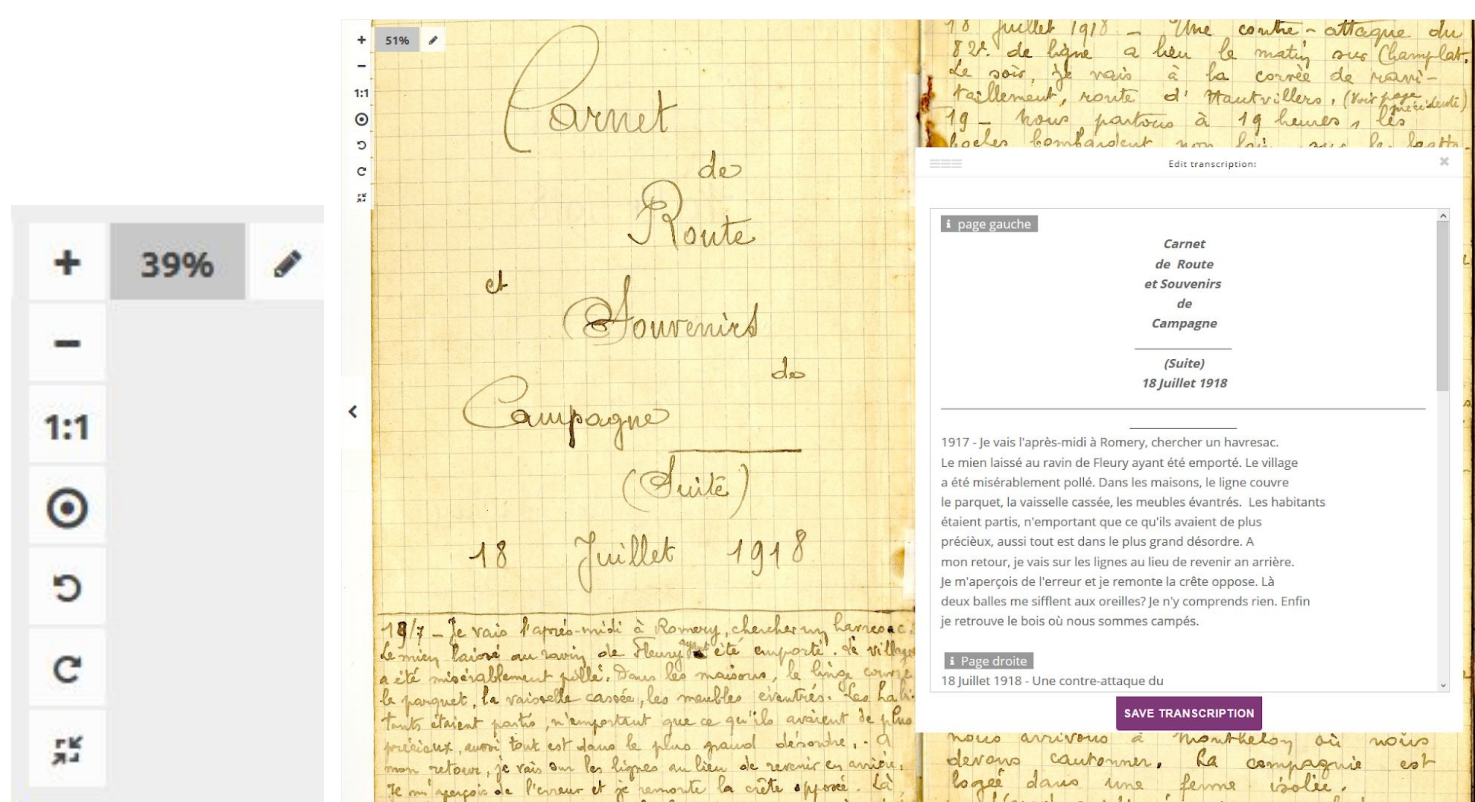 39%
1:1
51%
1:1
Carnet
de
Route
et
Souvenirs
de
Campagne
(Suite)
18 Juillet 1918
18/7 - Je vais l'après-midi à Romery, chercher un havresac.
Le mien laissé au ravin de Fleury ayant été emporté. Le village
a été misérablement pillé. Dans les maisons, le linge couvre
le parquet, la vaisselle cassée, les meubles éventrés. Les habi-
tants étaient partis, n'emportant que ce qu'ils avaient de plus
précieux, aussi tout est dans le plus grand désordre. A
mon retour, je vais sur les lignes au lieu de revenir en arrière.
Je m'aperçois de l'erreur et je remonte la crête opposé. Là
18 Juillet 1918 - Une contre-attaque du
82e de ligne a lieu le matin sur Champlat.
Le soir, je vais à la corvée de ravi-
taillement, route d'Hautvillers, (Voir page précédente)
19 - Nous partons à 19 heures, les
boches bombardent non loin, sur la
Edit transcription:
page gauche
Carnet
de Route
et Souvenirs
de
Campagne
(Suite)
18 Juillet 1918
1917 - Je vais l'après-midi à Romery, chercher un havresac.
Le mien laissé au ravin de Fleury ayant été emporté. Le village
a été misérablement pollé. Dans les maisons, le ligne couvre
le parquet, la vaisselle cassée, les meubles évantrés. Les habitants
étaient partis, n'emportant que ce qu'ils avaient de plus
précièux, aussi tout est dans le plus grand désordre. A
mon retour, je vais sur les lignes au lieu de revenir an arrière.
Je m'aperçois de l'erreur et je remonte la crête oppose. Là
deux balles me sifflent aux oreilles? Je n'y comprends rien. Enfin
je retrouve le bois où nous sommes campés.
Page droite
18 Juillet 1918 - Une contre-attaque du
SAVE TRANSCRIPTION
nous arrivons à Monthelon où nous
devons cantonner. La compagnie est
logée dans une ferme isolée.